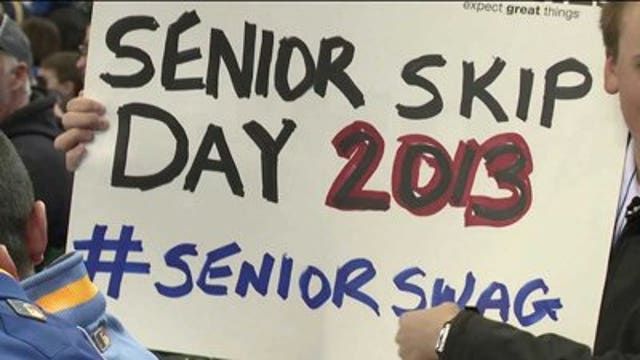 expect great things
SENIOR SKIP
DAY 2013
#SENIORSWAG